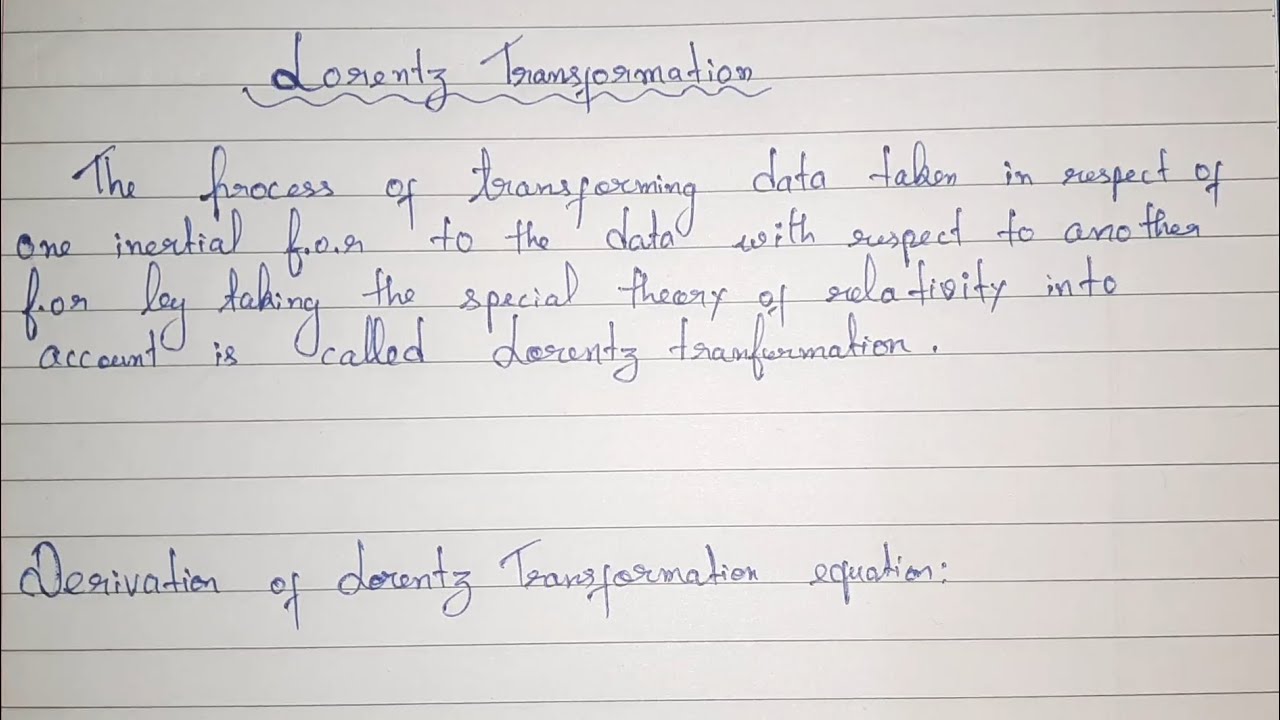 Lorentz Transformation
The process of transforming data taken in respect of
one inertial f.o.r to the data with respect to another
f.o.r by taking the special theory of relativity into
account is called Lorentz tranformation.
Derivation of Lorentz Transformation equation: